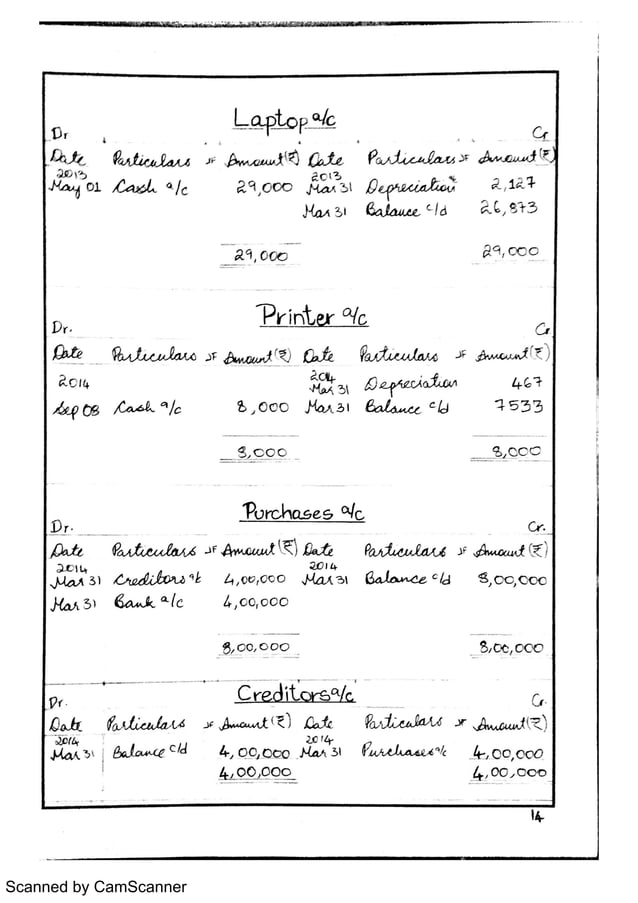 Laptop a/c
Dr Cr
Date Particulars JF Amount(₹) Date Particulars JF Amount(₹)
2013 2013
May 01 Cash a/c 29,000 Mar 31 Depreciation 2,127
Mar 31 Balance c/d 26,873
29,000 29,000
Printer a/c
Dr. Cr
Date Particulars JF Amount(₹) Date Particulars JF Amount(₹)
2014 2014 Mar 31 Depreciation 467
Sep 08 Cash a/c 8,000 Mar 31 Balance c/d 7533
8,000 8,000
Purchases a/c
Dr. Cr.
Date Particulars JF Amount(₹) Date Particulars JF Amount(₹)
2014 2014
Mar 31 Creditors a/c 4,00,000 Mar 31 Balance c/d 8,00,000
Mar 31 Bank a/c 4,00,000
8,00,000 8,00,000
Creditors a/c
Dr. Cr.
Date Particulars JF Amount(₹) Date Particulars JF Amount(₹)
2014 2014
Mar 31 Balance c/d 4,00,000 Mar 31 Purchases a/c 4,00,000
4,00,000 4,00,000
14
Scanned by CamScanner